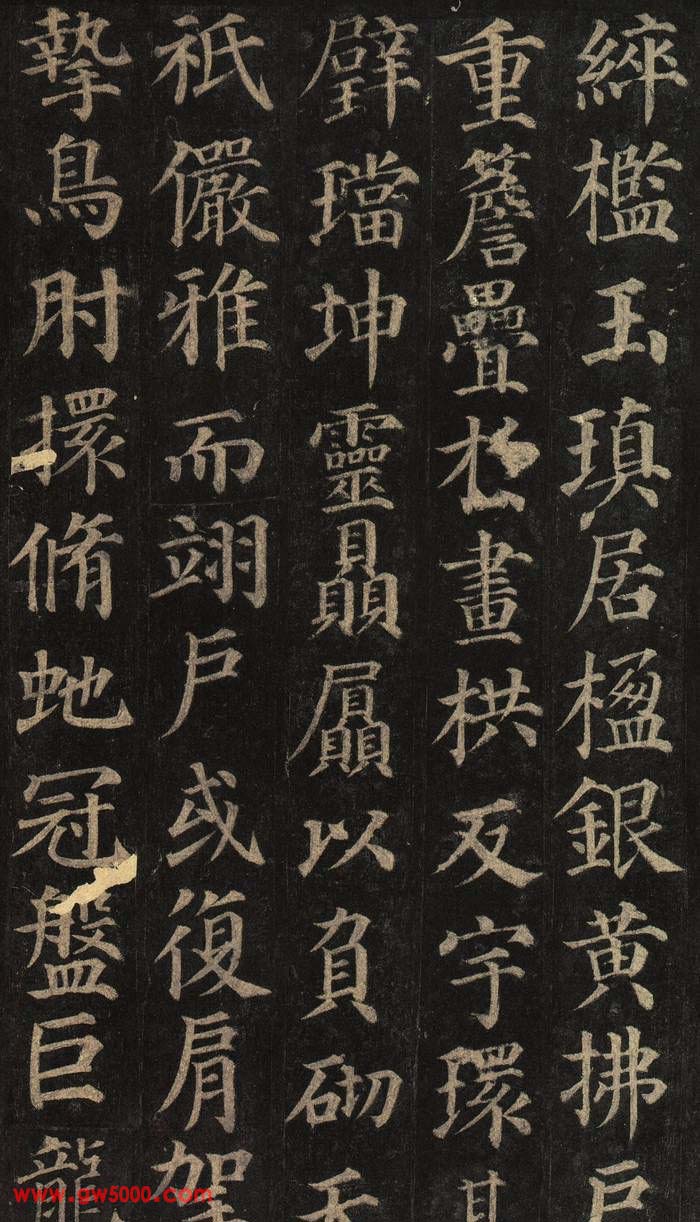 綷檻玉瑱居楹銀黃拂戶
重簷疊於畫栱反宇環其
璧璫坤靈贔屭以負砌天
祇儼雅而翊戶或復肩拏
摯鳥肘擐脩虵冠盤巨龍
www.gw5000.com